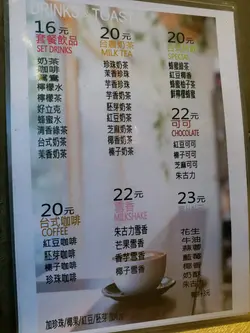 DRINKS TOAST
16元
套餐飲品
SET DRINKS
奶茶
咖啡
鴛鴦
檸檬水
檸檬茶
好立克
蜂蜜水
清香綠茶
台式奶茶
茉香奶茶
20元
台灣奶茶
MILK TEA
珍珠奶茶
茉香珍珠
芋香珍珠
芋香奶茶
胚芽奶茶
紅豆奶茶
芝麻奶茶
椰香奶茶
榛子奶茶
20
蜂蜜綠茶
紅豆椰香
蜂蜜柚子茶
鮮檸檬蜂蜜
22元
可可
CHOCOLATE
紅豆可可
榛子可可
芝麻可可
朱古力
20元
台式咖啡
COFFEE
紅豆咖啡
胚芽咖啡
榛子咖啡
珍珠咖啡
22元
雪香
MILKSHAKE
朱古力雪香
芒果雪香
芋香雪香
椰子雪香
23元
花生
牛油
加珍珠/椰果/紅豆/胚芽